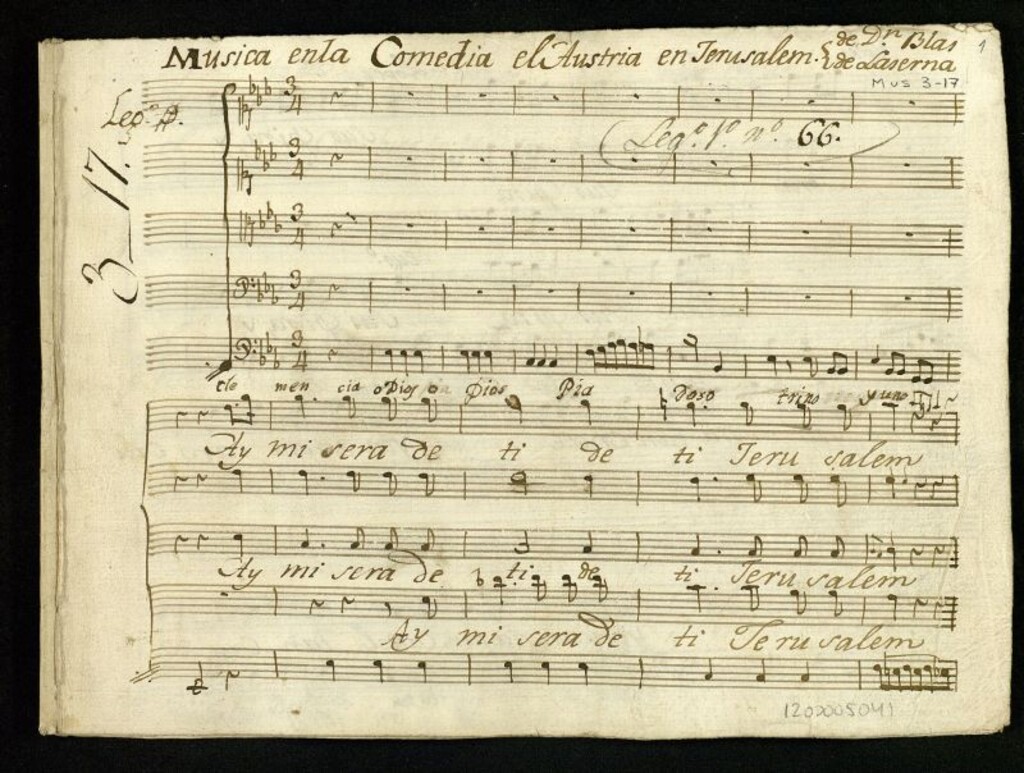 Musica enla Comedia el Austria en Jerusalem. de Dn. Blas
de Laserna
1
Mus 3-17
Lego.
Lego. 1o. no. 66.
3-17.
3 4
3 4
3 4
3 4
3 4
cle men cia o Dios Dios Pia doso trino y uno
Ay mi sera de ti de ti Jeru salem
Ay mi sera de ti de ti Jeru salem
Ay mi sera de ti Jeru salem
1200005041